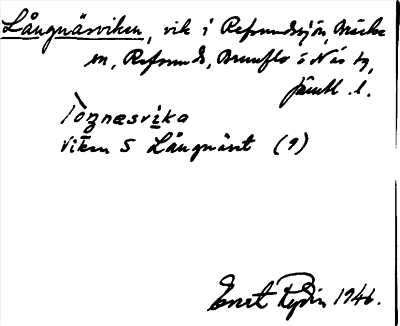 Långnäsviken, vik i Refsundssjön, Bräcke
sn, Refsunds, Brunflo o Näs tg,
Jämtl. l.
Tògnæsvika
Viken S Långnäset (9)
Evert Rydin 1946.